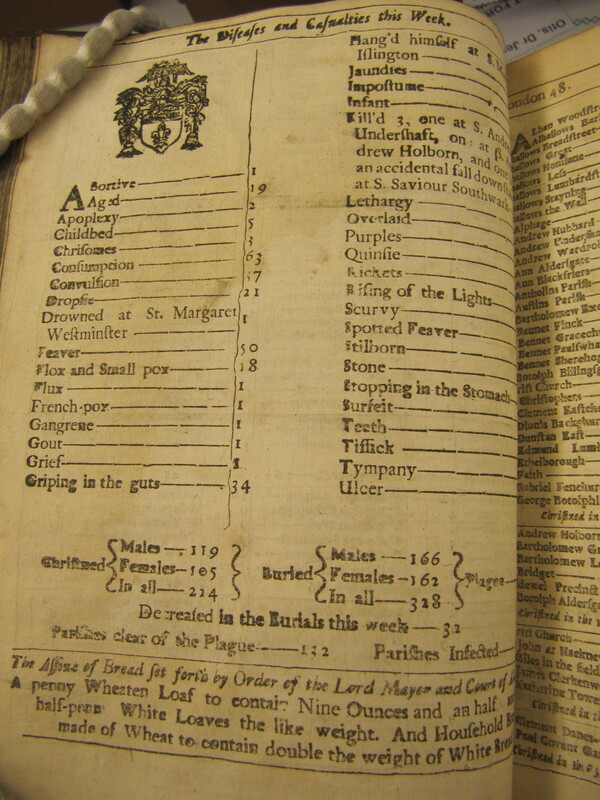 The Diſeaſes and Caſualties this Week.
ABortive 1
Aged 19
Apoplexy 2
Childbed 5
Chriſomes 3
Conſumption 63
Convulſion 37
Dropſie 21
Drowned at St. Margaret
Weſtminſter 1
Feaver 50
Flox and Small pox 18
Flux 1
French-pox 1
Gangrene 1
Gout 1
Grief 1
Griping in the guts 34
Hang'd himſelf at S.
Iſlington
Jaundies
Impoſtume
Infant
Kill'd 3, one at S. Andre
Underſhaft, on: at
drew Holborn, and one
an accidental fall down
at S. Saviour Southwark
Lethargy
Overlaid
Purples
Quinſie
Rickets
Riſing of the Lights
Scurvy
Spotted Feaver
Stilborn
Stone
Stopping in the Stomach
Surfeit
Teeth
Tiſſick
Tympany
Ulcer
Chriſtned Males 119
Females 105
In all 224
Buried Males 166
Females 162
In all 328
Plague
Decreaſed in the Burials this week 32
Pariſhes clear of the Plague 132 Pariſhes Infected
The Aſſize of Bread ſet forth by Order of the Lord Mayor and Court of
A penny Wheaten Loaf to contain Nine Ounces and an half
half-penny White Loaves the like weight. And Houſhold
made of Wheat to contain double the weight of White Bread
London 48.
Alban Woodſtr
Alhallows Bark
allows Breadſtreet
allows Great
allows Honilane
allows Leſs
allows Lumbardſt
allows Stayning
allows the Wall
Alphage
Andrew Hubbard
Andrew Underſha
Andrew Wardrob
Ann Alderſgate
Ann Blackfriers
Antholins Pariſh
Auſtins Pariſh
Bartholomew Exc
Bennet Finck
Bennet Gracech
Bennet Paulſwha
Bennet Sherehog
Botolph Billingſg
riſt Church
Chriſtophers
Clement Eaſtche
Dionis Backchur
Dunſtan Eaſt
Edmund Lumb
Ethelborough
Faith
Gabriel Fenchur
George Botolphl
Chriſtned in
Andrew Holborn
Bartholomew Gr
Bartholomew L
Bridget
Bridewel Precinct
Botolph Alderſga
Chriſtned in the
riſt Church
John at Hackney
Giles in the field
James Clerkenwe
Katharine Tower
Chriſtned in th
Clement Danes
Paul Covent Gar
Chriſtned in the 5